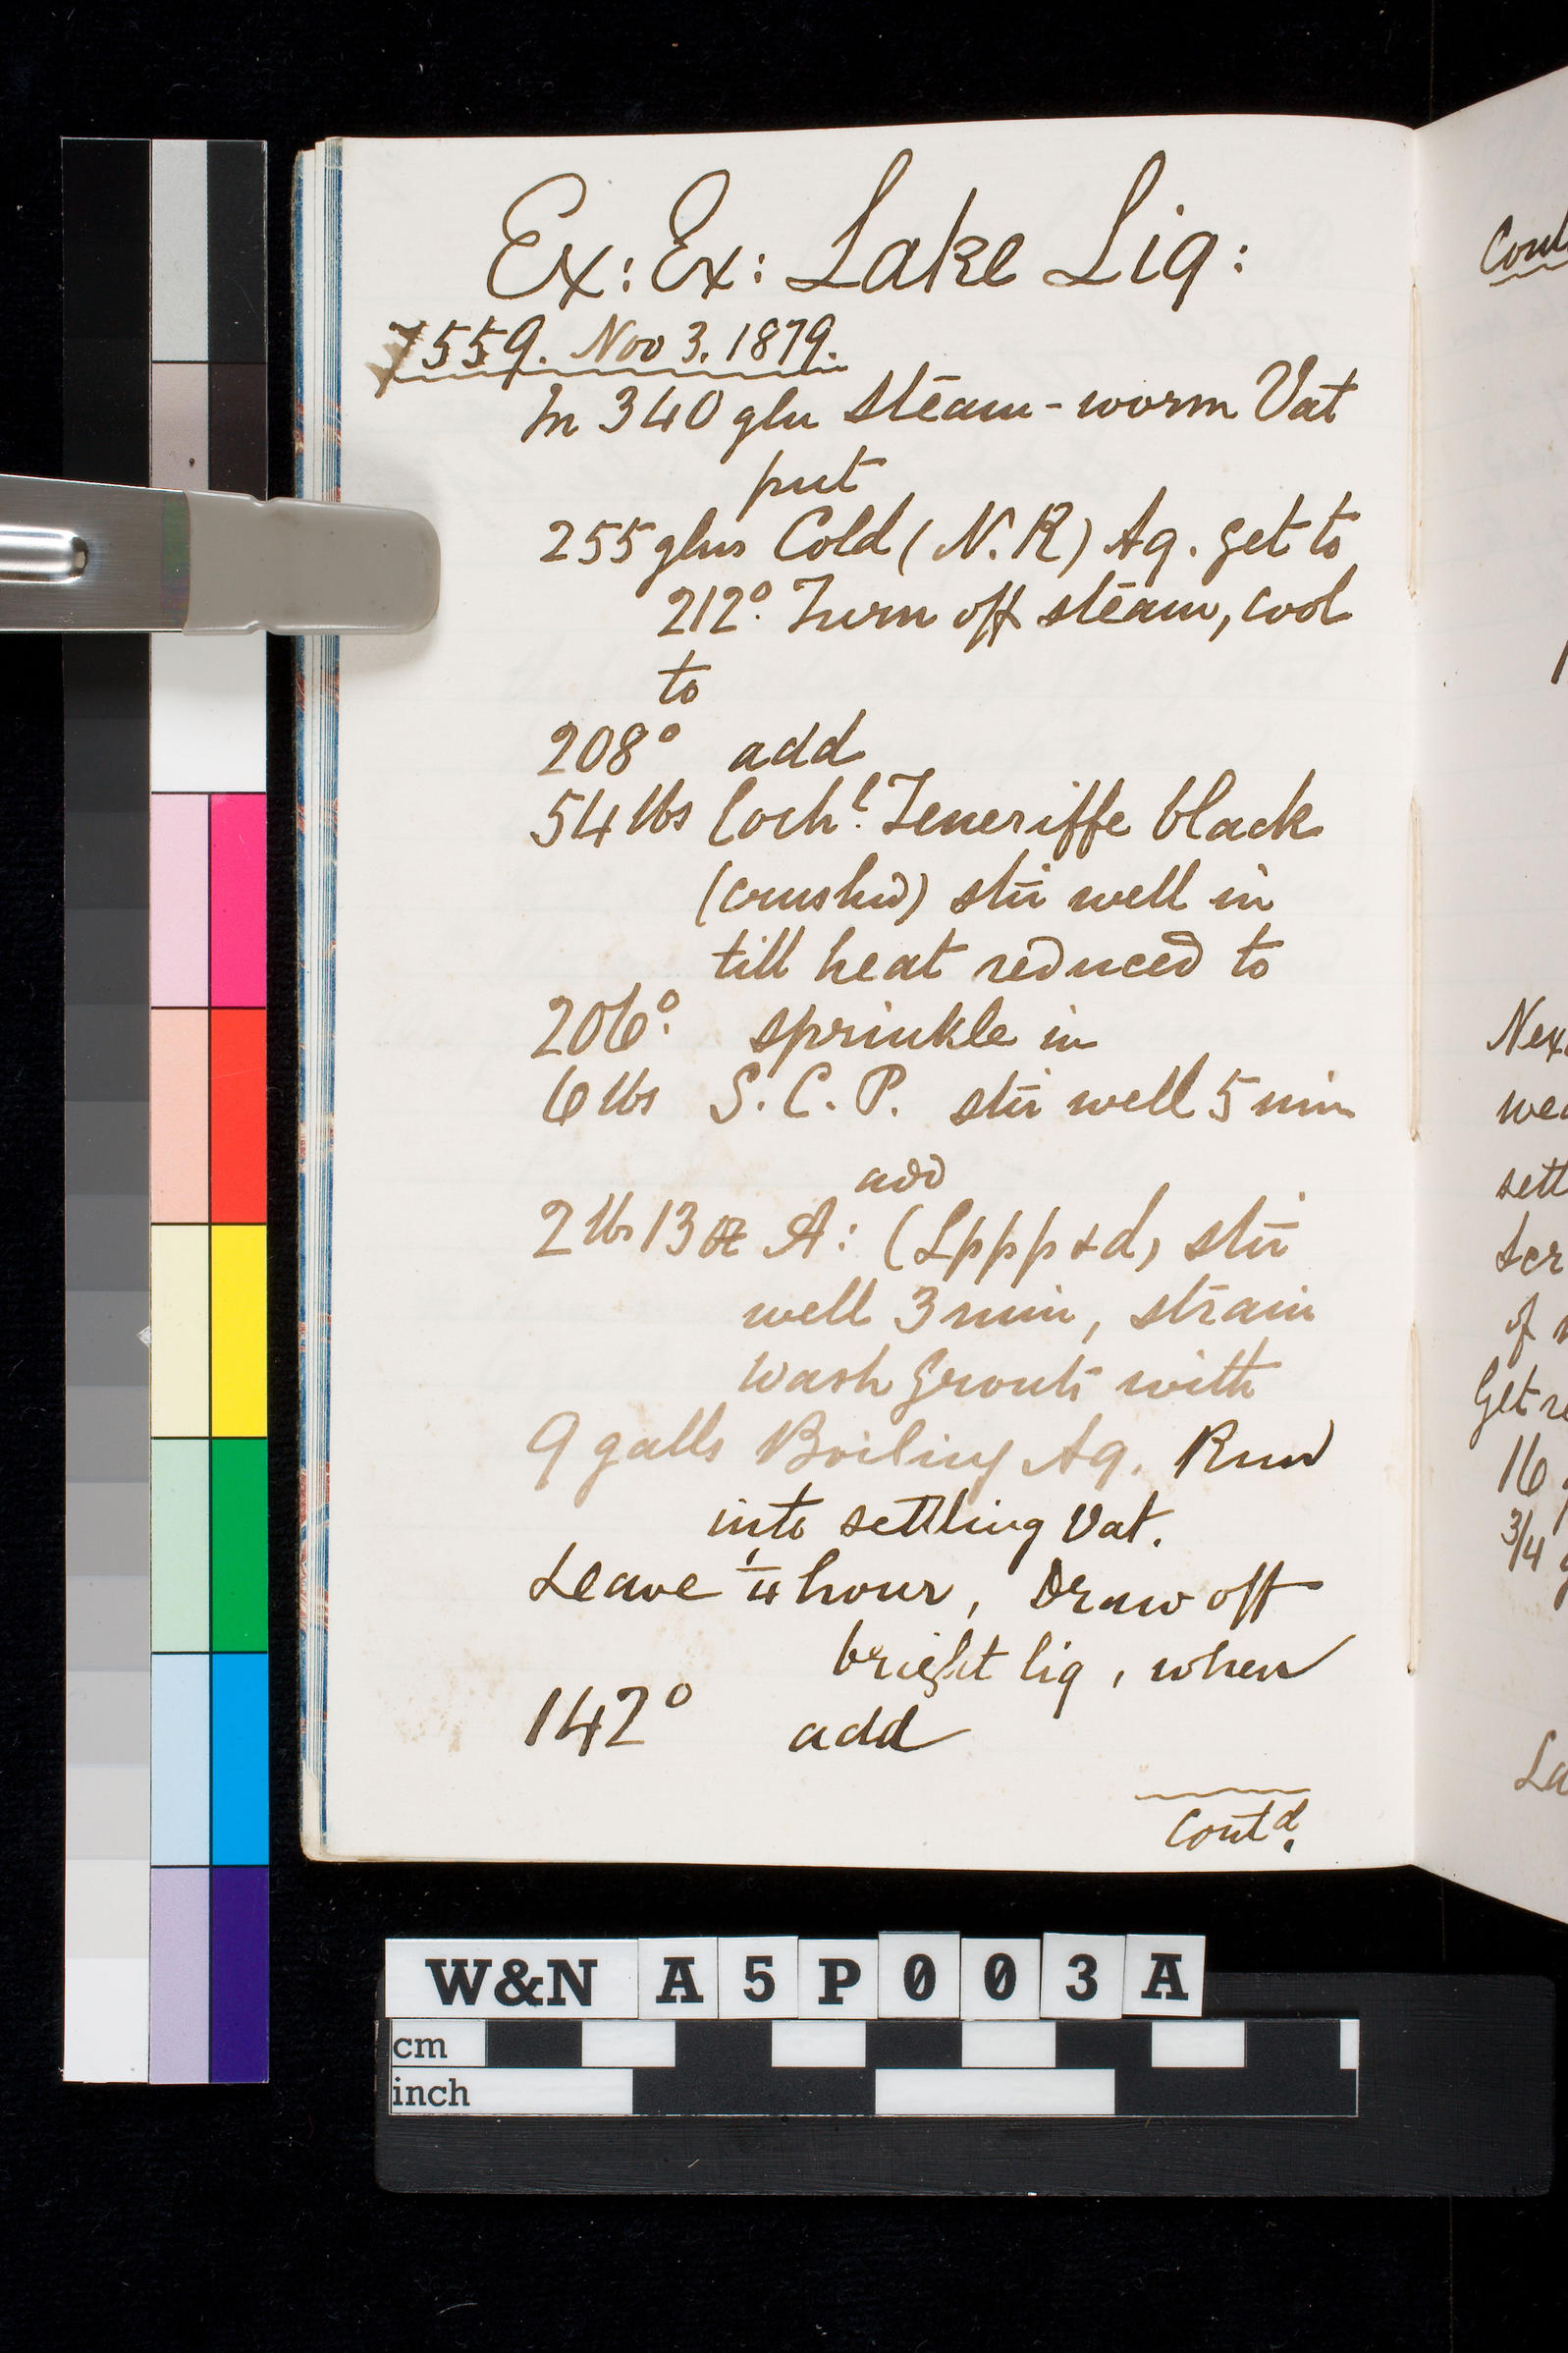 Ex: Ex: Lake Liq:
7559. Nov 3. 1879.
In 340 gln steam-worm Vat
put
255 glns Cold (N.R) Aq. get to
212°. Turn off steam, cool
to
208° add
54 lbs Cochl. Teneriffe black
(crushed) stir well in
till heat reduced to
206°. sprinkle in
6 lbs S. C. P. stir well 5 min
add
2 lbs 13 oz A: (Lppp&d) stir
well 3 min, strain
wash grouts with
9 galls Boiling Aq. Run
into settling Vat.
Leave 1/4 hour, Draw off
bright liq, when
142° add
Contd.
Cont
Nex
wea
sett
Scr
of
Get re
16
3/4
La
W&N A5P003A
cm
inch